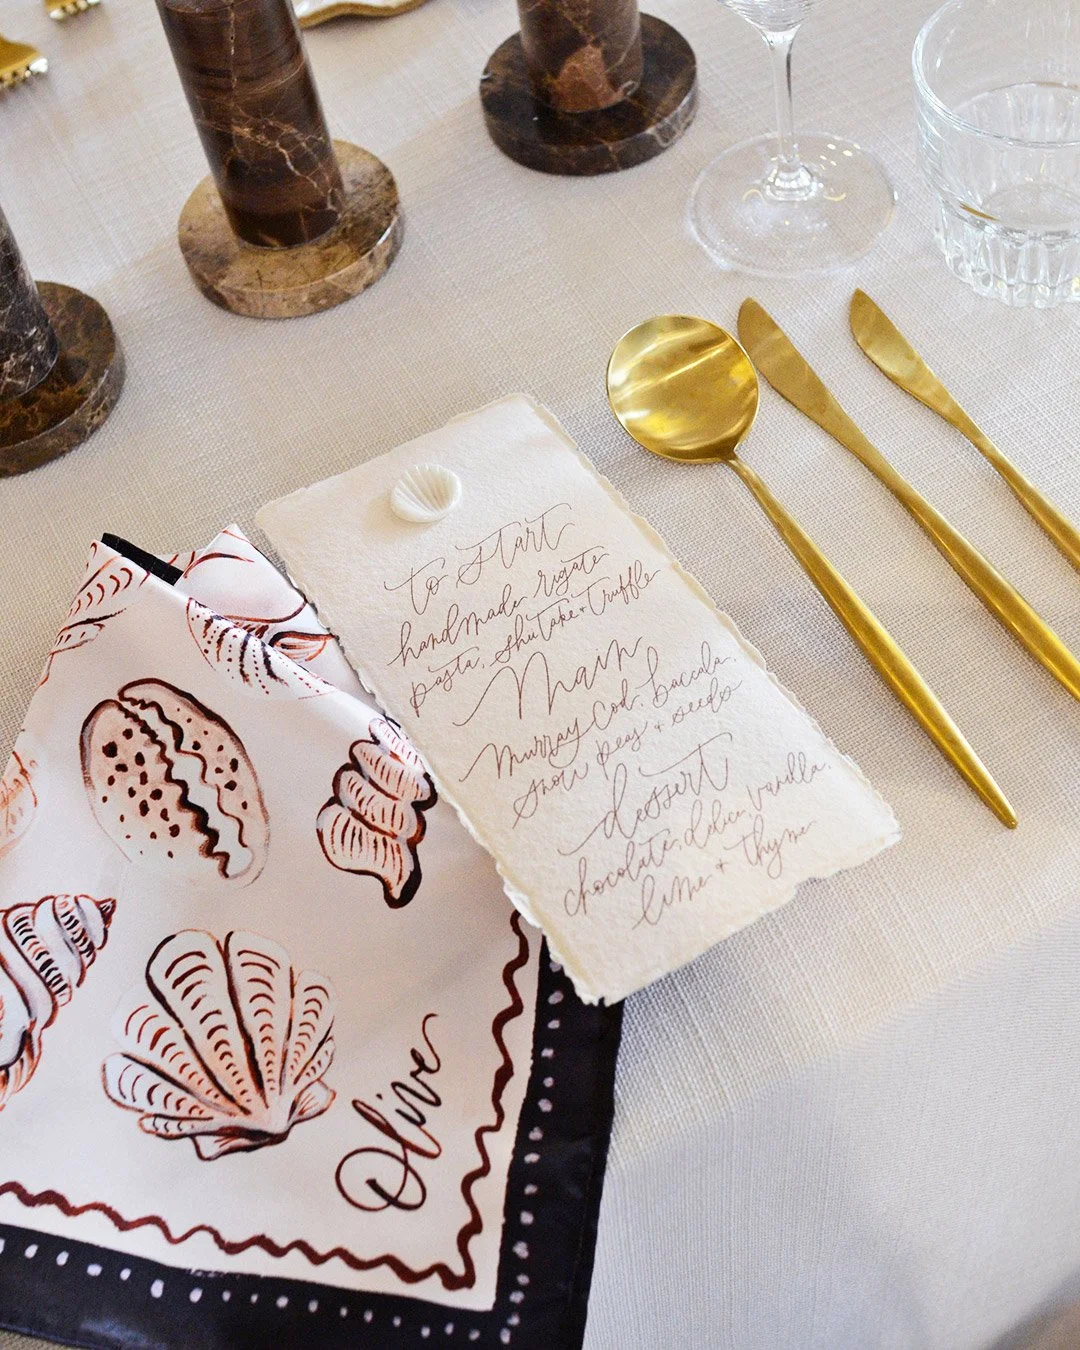 to start
handmade rigate
pasta, shiitake + truffle
Main
Murray Cod, baccala,
snow peas + seeds
dessert
chocolate, delice, vanilla,
lime + thyme
Olive